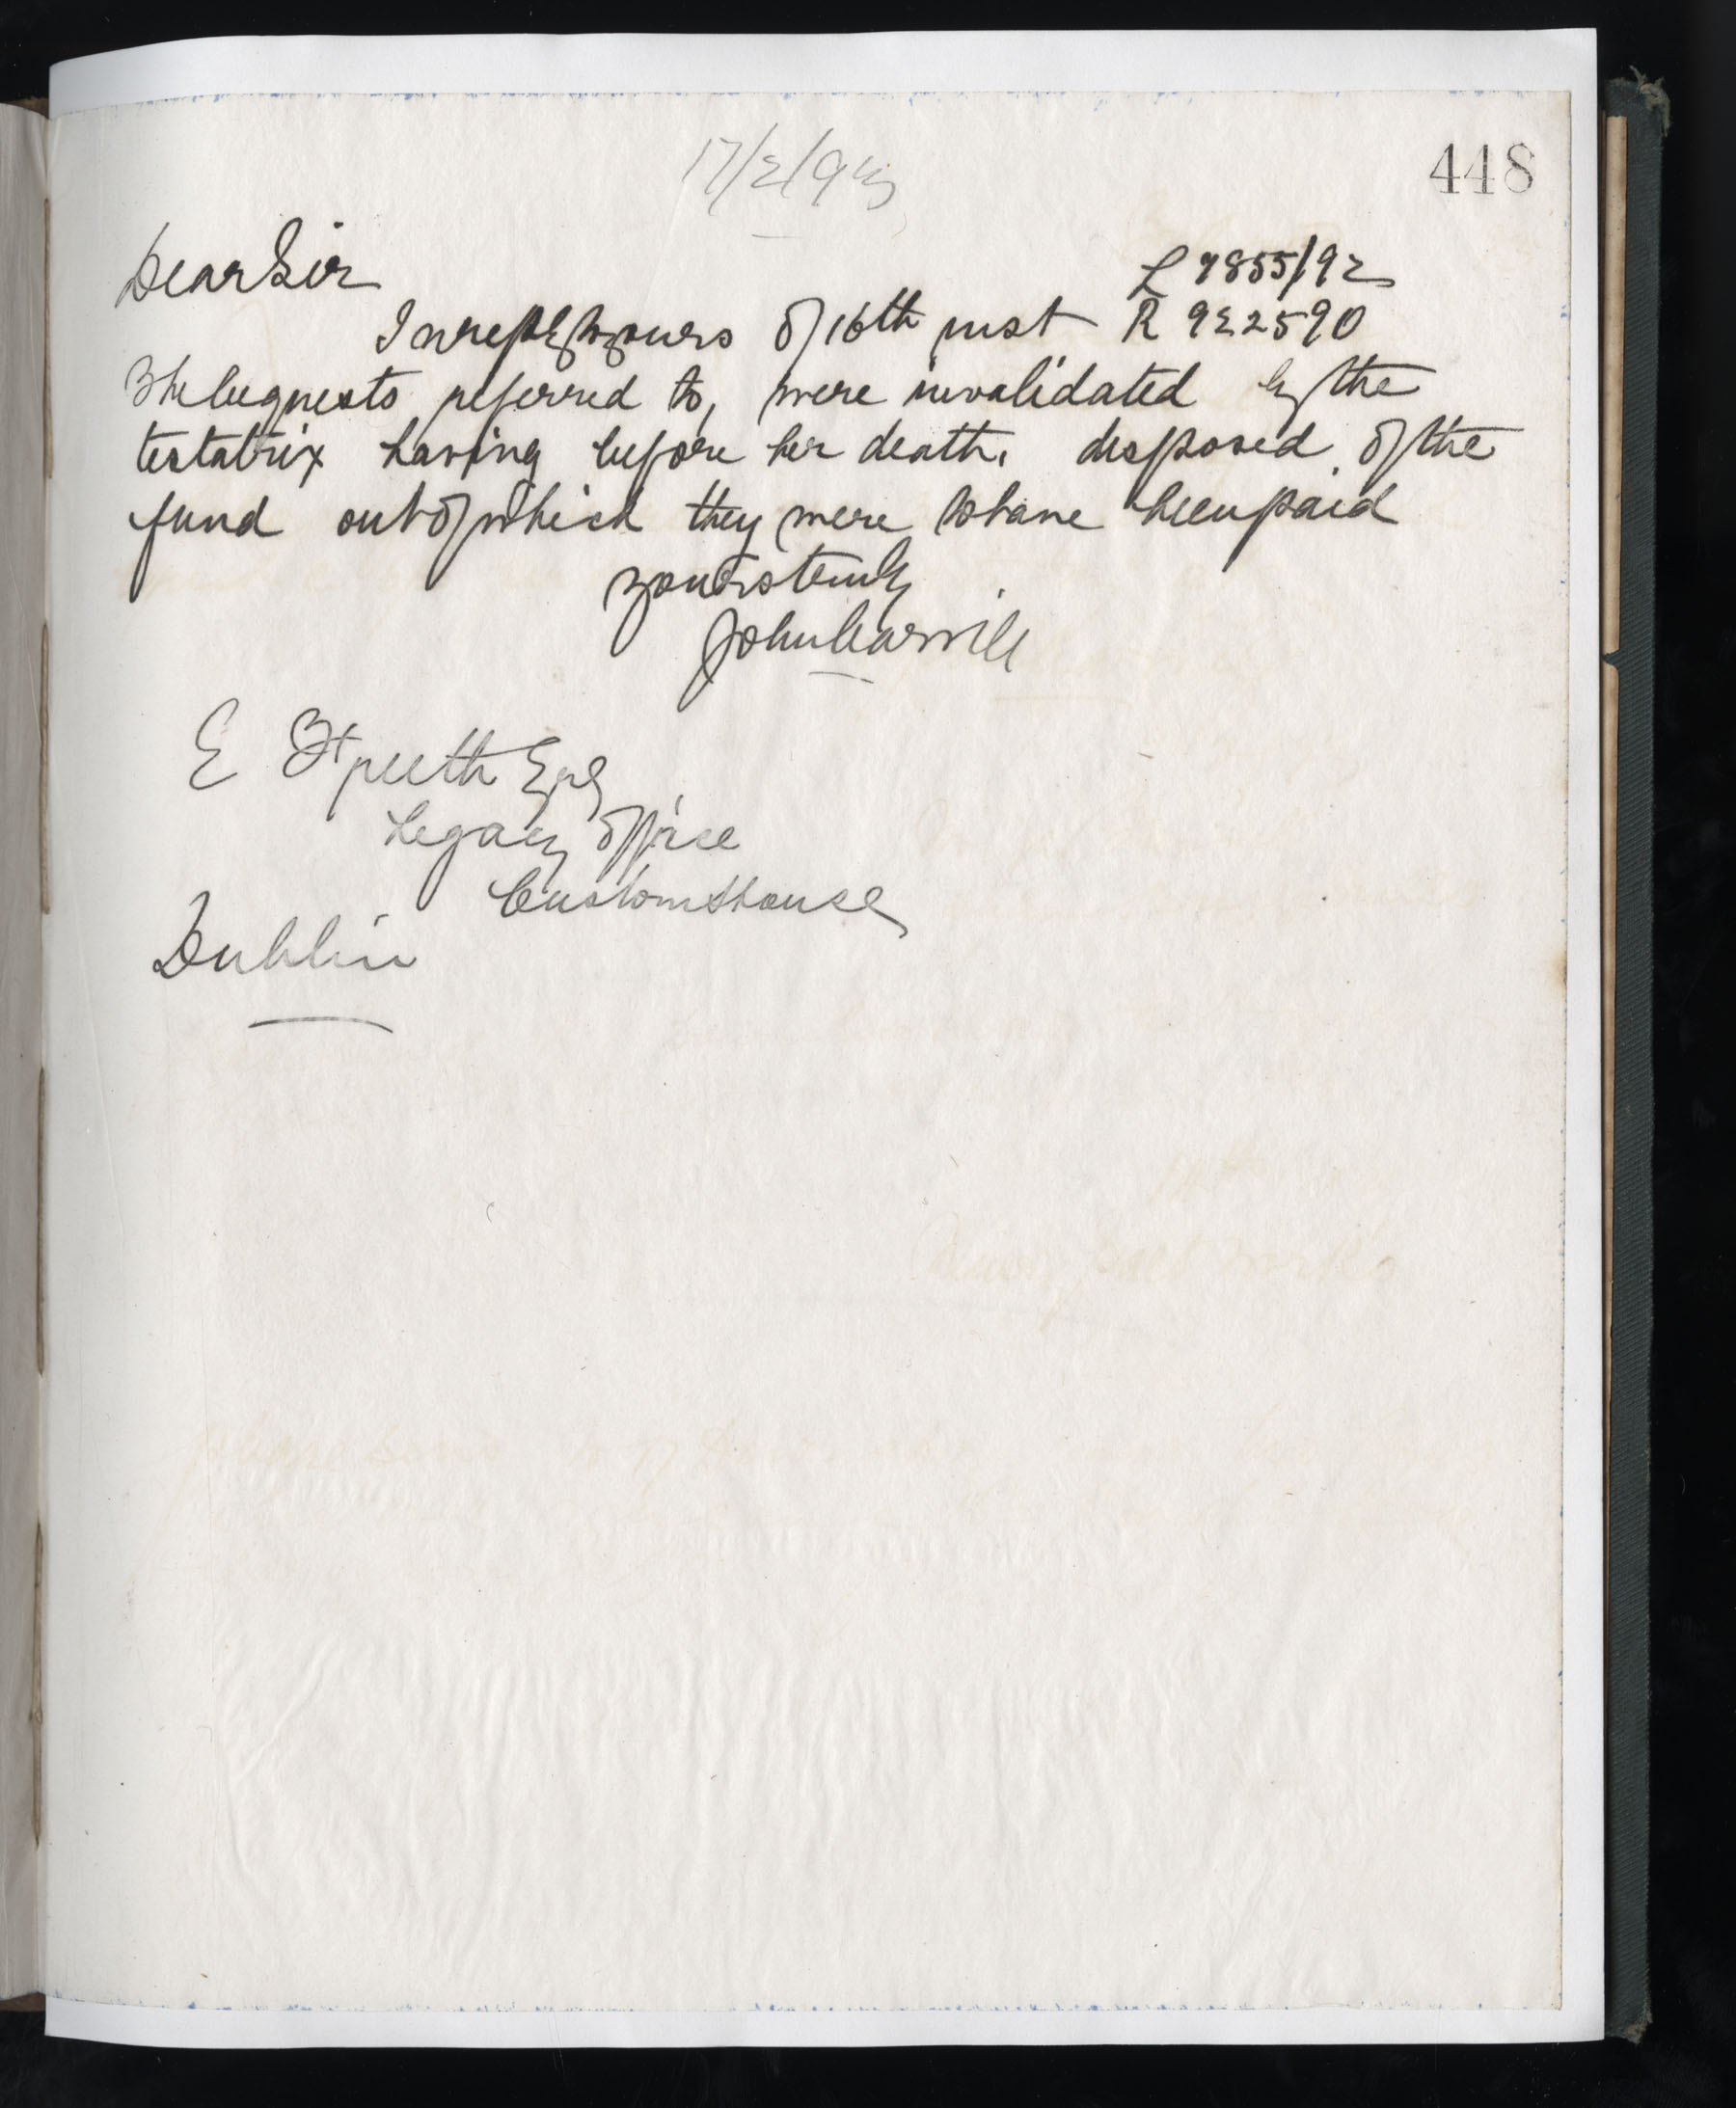 448
17/2/93
Dear Sir
L 7855/92
In reply to yours of 16th inst R 922590
The bequests referred to, were invalidated by the
testatrix having before her death, disposed of the
fund out of which they were to have been paid
yours truly
John Carvill
E
Esq
Legacy Office
Customs House
Dublin